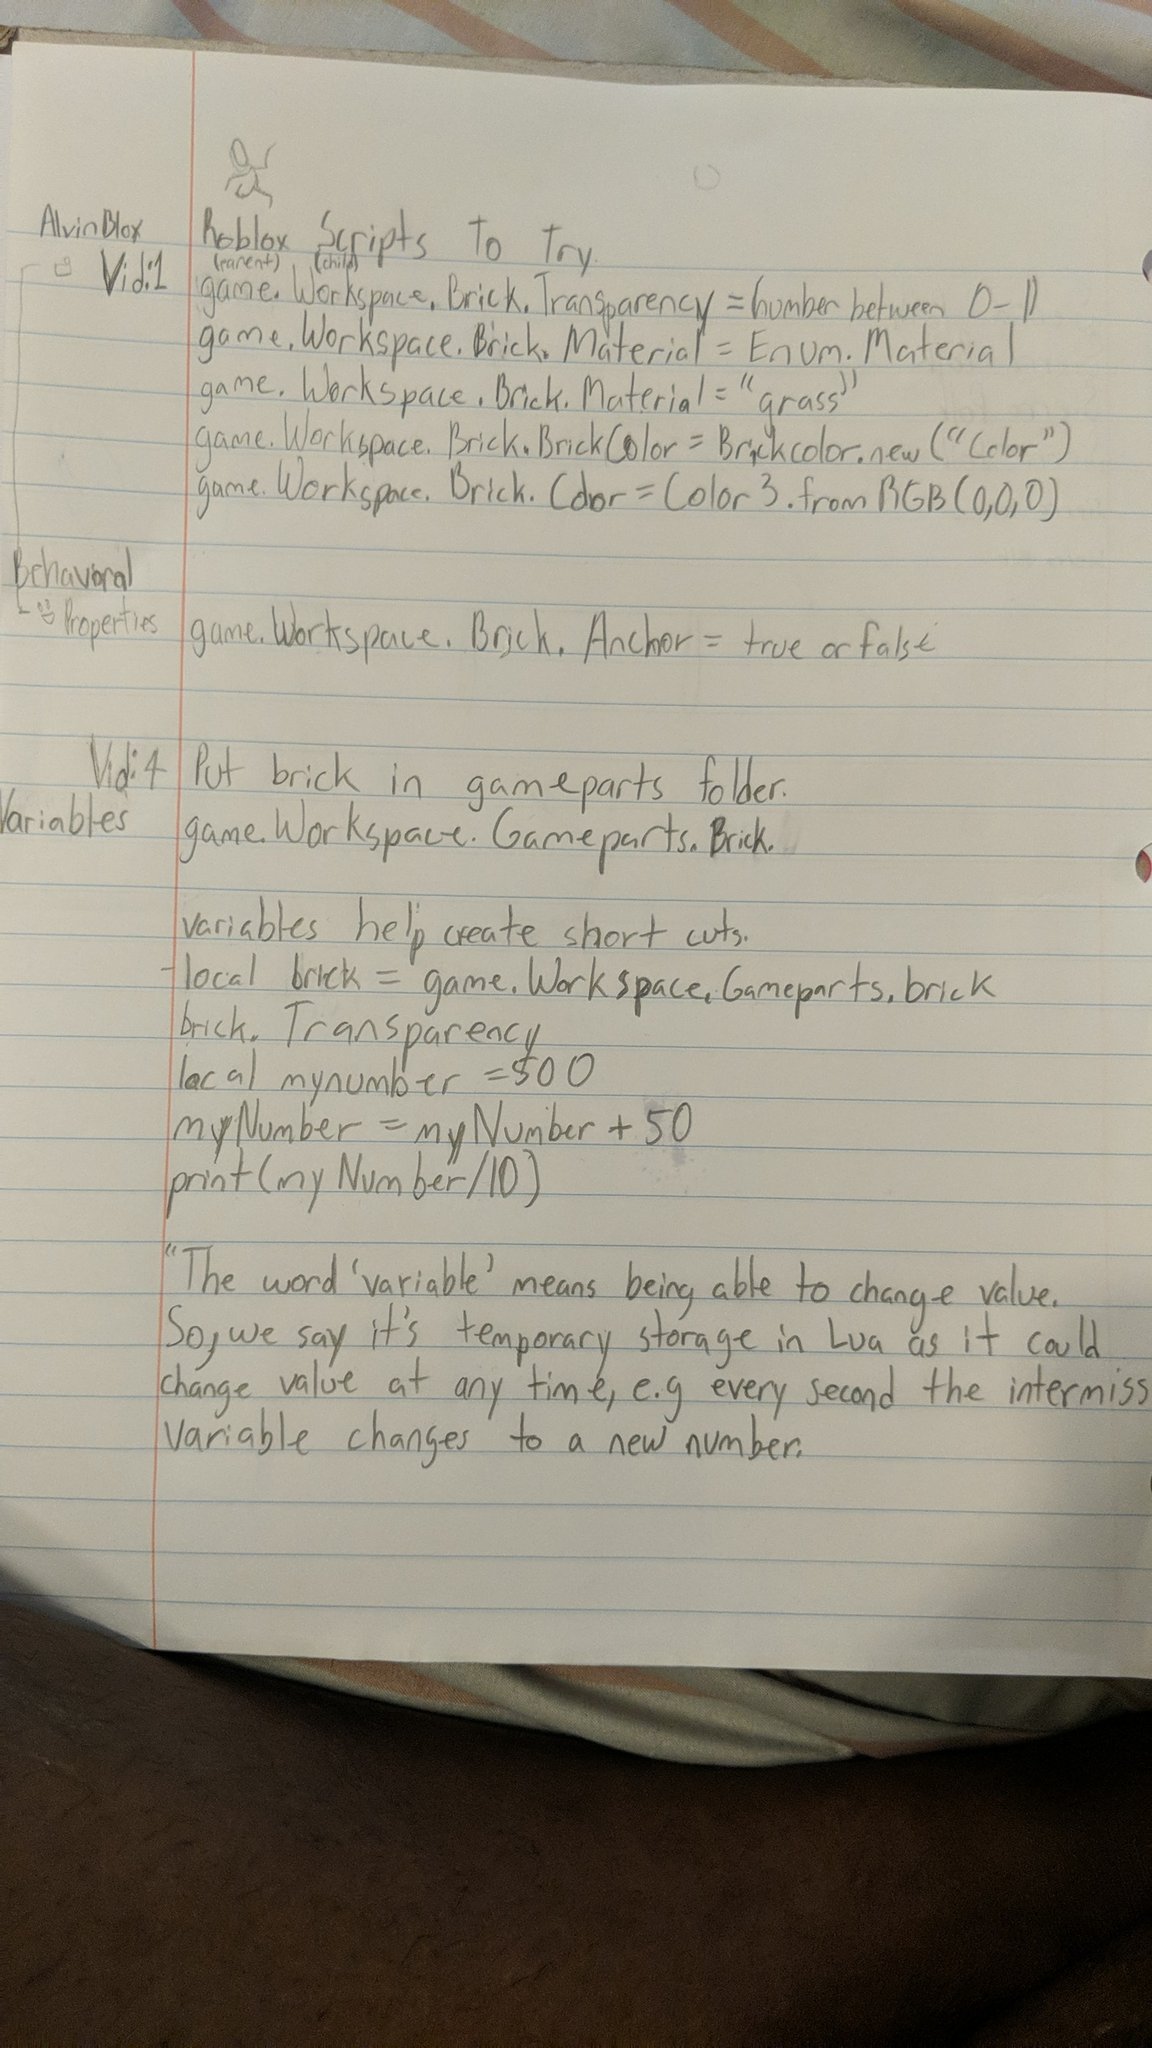 AlvinBlox Roblox Scripts To Try
(parent) (child)
Vid:1 game.Workspace.Brick.Transparency = number between 0-1
game.Workspace.Brick.Material = Enum.Material
game.Workspace.Brick.Material = "grass"
game.Workspace.Brick.BrickColor = Brickcolor.new("Color")
game.Workspace.Brick.Color = Color3.fromRGB(0,0,0)
Behavoral
Properties game.Workspace.Brick.Anchor = true or false
Vid:4 Put brick in gameparts folder.
Variables game.Workspace.Gameparts.Brick.
variables help create short cuts.
-local brick = game.Workspace.Gameparts.brick
brick.Transparency
local mynumber = 500
myNumber = myNumber + 50
print(myNumber/10)
"The word 'variable' means being able to change value.
So, we say it's temporary storage in Lua as it could
change value at any time, e.g every second the intermiss
variable changes to a new number.